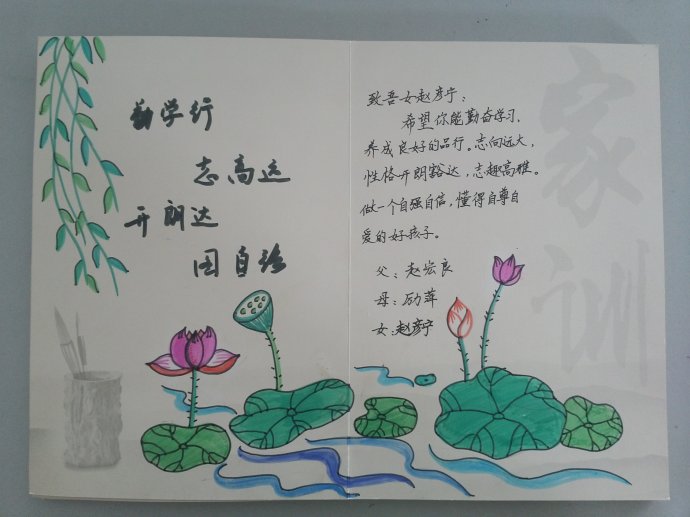 勤学行
志高远
开朗达
因自强
家训
致吾女赵彦宁：
希望你能勤奋学习，
养成良好的品行。志向远大，
性格开朗豁达，志趣高雅。
做一个自强自信，懂得自尊自
爱的好孩子。
父：赵宏良
母：励萍
女：赵彦宁